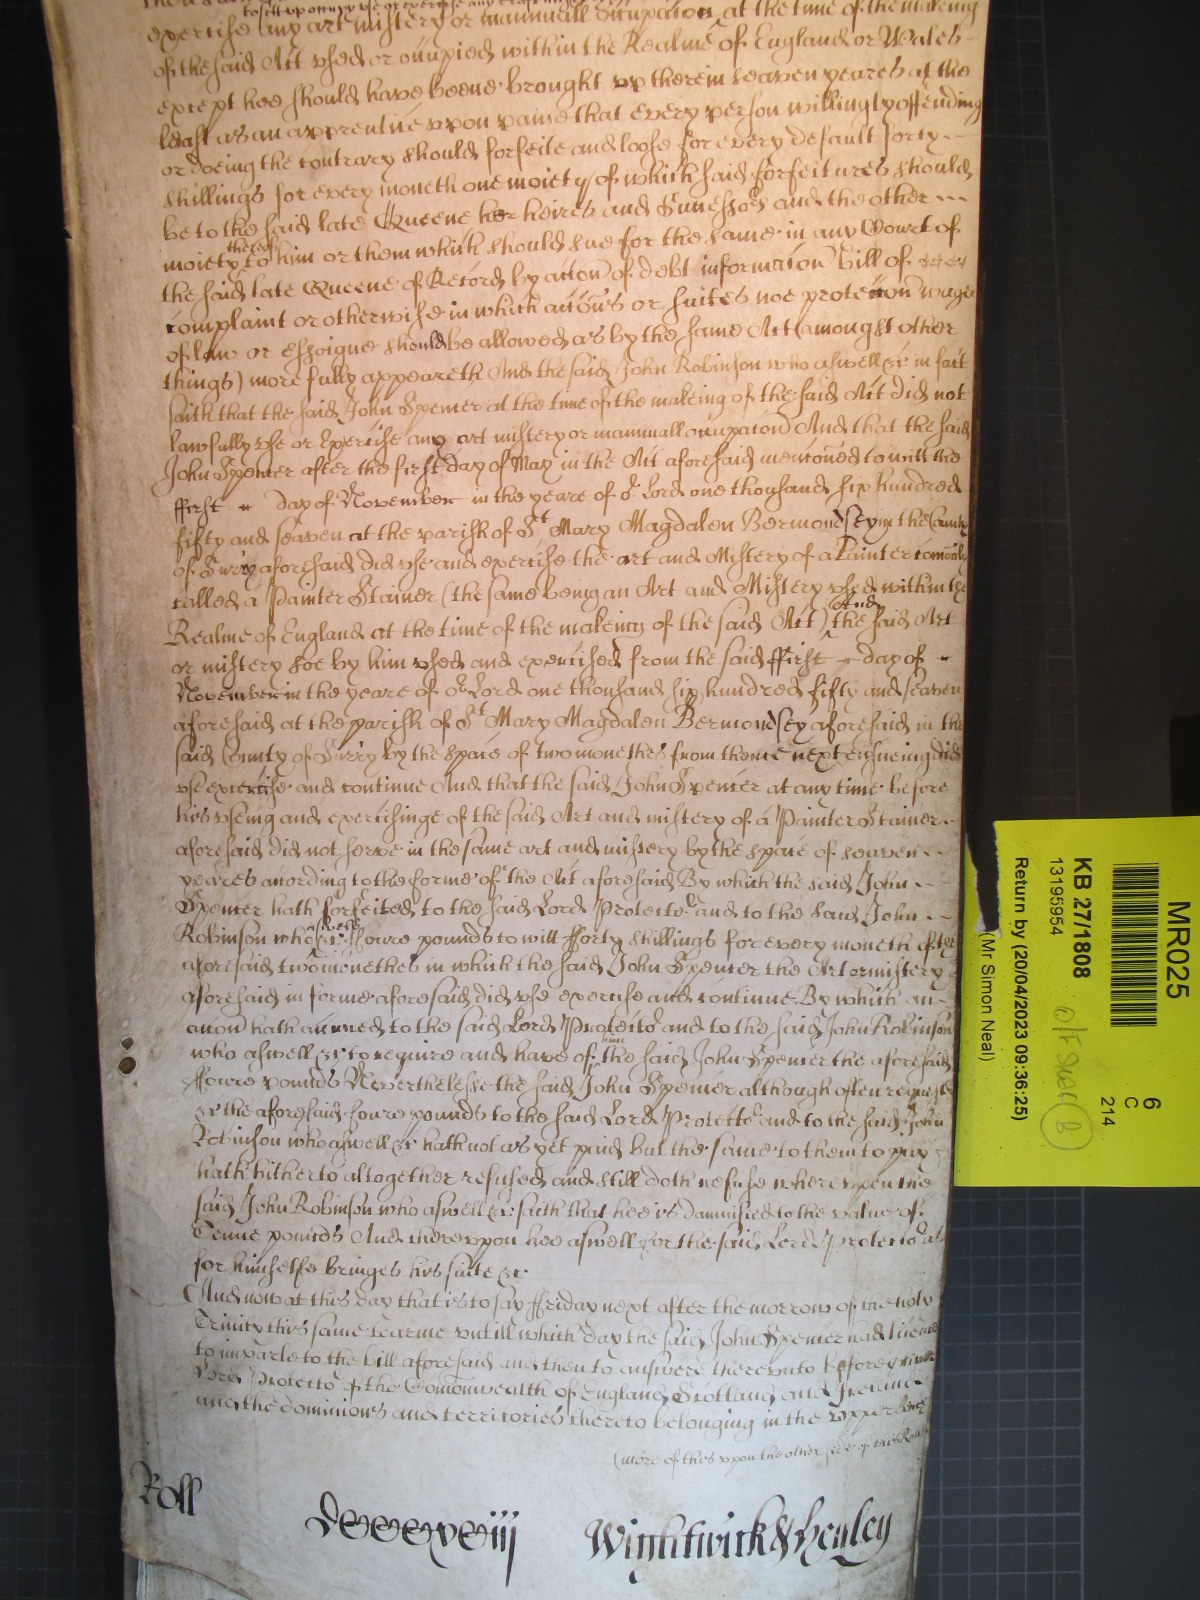 to sett up occupy use or exercise any craft mistery
exercise any art mistery or manuall Occupacon at the time of the makeing
of the said Act used or occupied within the Realme of England or Wales
except hee should have beene brought up therein seaven yeares at the
least as an apprentice upon paine that every person willingly offending
or doeing the contrary should forfeite and loose for every default forty
shillings for every moneth one moiety of which said forfeitures should
be to the said late Queene her heires and Successors and the other
moiety thereof to him or them which should sue for the same in any Court of
the said late Queene of Record by accon of debt informacion bill of
complaint or otherwise in which accons or suites noe proteccon wager
of law or essoigne should be allowed as by the same Act (amongst other
things) more fully appeareth And the said John Robinson who aswell &c in fact
saith that the said John Spencer at the time of the makeing of the said Act did not
lawfully use or Exercise any art mistery or mannuall occupacon And that the said
John Spencer after the first day of May in the Act aforesaid menconed to witt the
ffirst day of November in the yeare of our Lord one thousand six hundred
fifty and seaven at the parish of St Mary Magdalen Bermondsey in the County
of Surry aforesaid did use and exercise the art and Mistery of a Painter comonly
called a Painter Stainer (the same being an Art and Mistery used within the
Realme of England at the time of the makeing of the said Act) And the said Art
or mistery soe by him used and exercised from the said ffirst day of
November in the yeare of our Lord one thousand six hundred fifty and seaven
aforesaid at the parish of St Mary Magdalen Bermondsey aforesaid in the
said County of Surry by the space of two monethes from thence next ensueing did
use exercise and continue And that the said John Spencer at any time before
his useing and exercisinge of the said Art and mistery of a Painter Stainer
aforesaid did not serve in the same art and mistery by the space of seaven
yeares according to the forme of the Act aforesaid By which the said John
Spencer hath forfeited to the said Lord Protector and to the said John
Robinson who aswell &c ffoure pounds to witt fforty shillings for every moneth of the
aforesaid two monethes in which the said John Spencer the Art or mistery
aforesaid in forme aforesaid did use exercise and continue By which an
accon hath accrued to the said Lord Protector and to the said John Robinson
who aswell &c to require and have of him the said John Spencer the aforesaid
ffoure pounds Neverthelesse the said John Spencer although often requested
&c the aforesaid foure pounds to the said Lord Protector and to the said John
Robinson who aswell &c hath not as yet paid but the same to them to pay
hath hitherto altogether refused and still doth refuse whereupon the
said John Robinson who aswell &c saith that hee is damnified to the value of
Tenne pounds And thereupon hee aswell for the said Lord Protector as
for himselfe bringes his suite &c
And now at this day that is to say ffriday next after the morrow of the holy
Trinity this same tearme untill which day the said John Spencer had licence
to imparle to the bill aforesaid and then to answere thereunto before
Lord Protector of the Comonwealth of England Scotland and Ireland
and the dominions and territories thereto belonging in the upper bench
(more of this upon the other side of this Roll
Roll
Wightwick & Henley
MR025
6
C
214
KB 27/1808
13195954
Return by (20/04/2023 09:36:25)
(Mr Simon Neal)